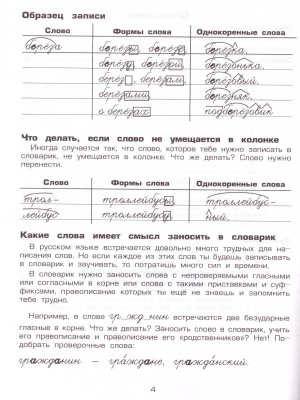 Образец записи
Слово Формы слова Однокоренные слова
берёза берёзы, берёзе, берёзка,
берёзу, берёзой, берёзонька,
берёз, берёзам, берёзовый,
берёзами, березняк,
о берёзах подберёзовик
Что делать, если слово не умещается в колонке
Иногда случается так, что слово, которое тебе нужно записать в
словарик, не умещается в колонке. Что же делать? Слово нужно
перенести.
Слово Формы слова Однокоренные слова
трол- троллейбусы, троллейбус-
лейбус троллейбусу, ный,
Какие слова имеет смысл заносить в словарик
В русском языке встречается довольно много трудных для на-
писания слов. Но если каждое из этих слов ты будешь записывать
в словарик и заучивать, то потратишь много сил и времени.
В словарик нужно заносить слова с непроверяемыми гласными
или согласными в корне или слова с такими приставками и суф-
фиксами, правописание которых ты ещё не знаешь и запомнить
тебе трудно.
Например, в слове гр_жд_нин встречаются две безударные
гласные в корне. Что же делать? Заносить слово в словарик, учить
его правописание и правописание его «родственников»? Нет! По-
добрать проверочные слова:
гражданин – граждане, гражданский.
4